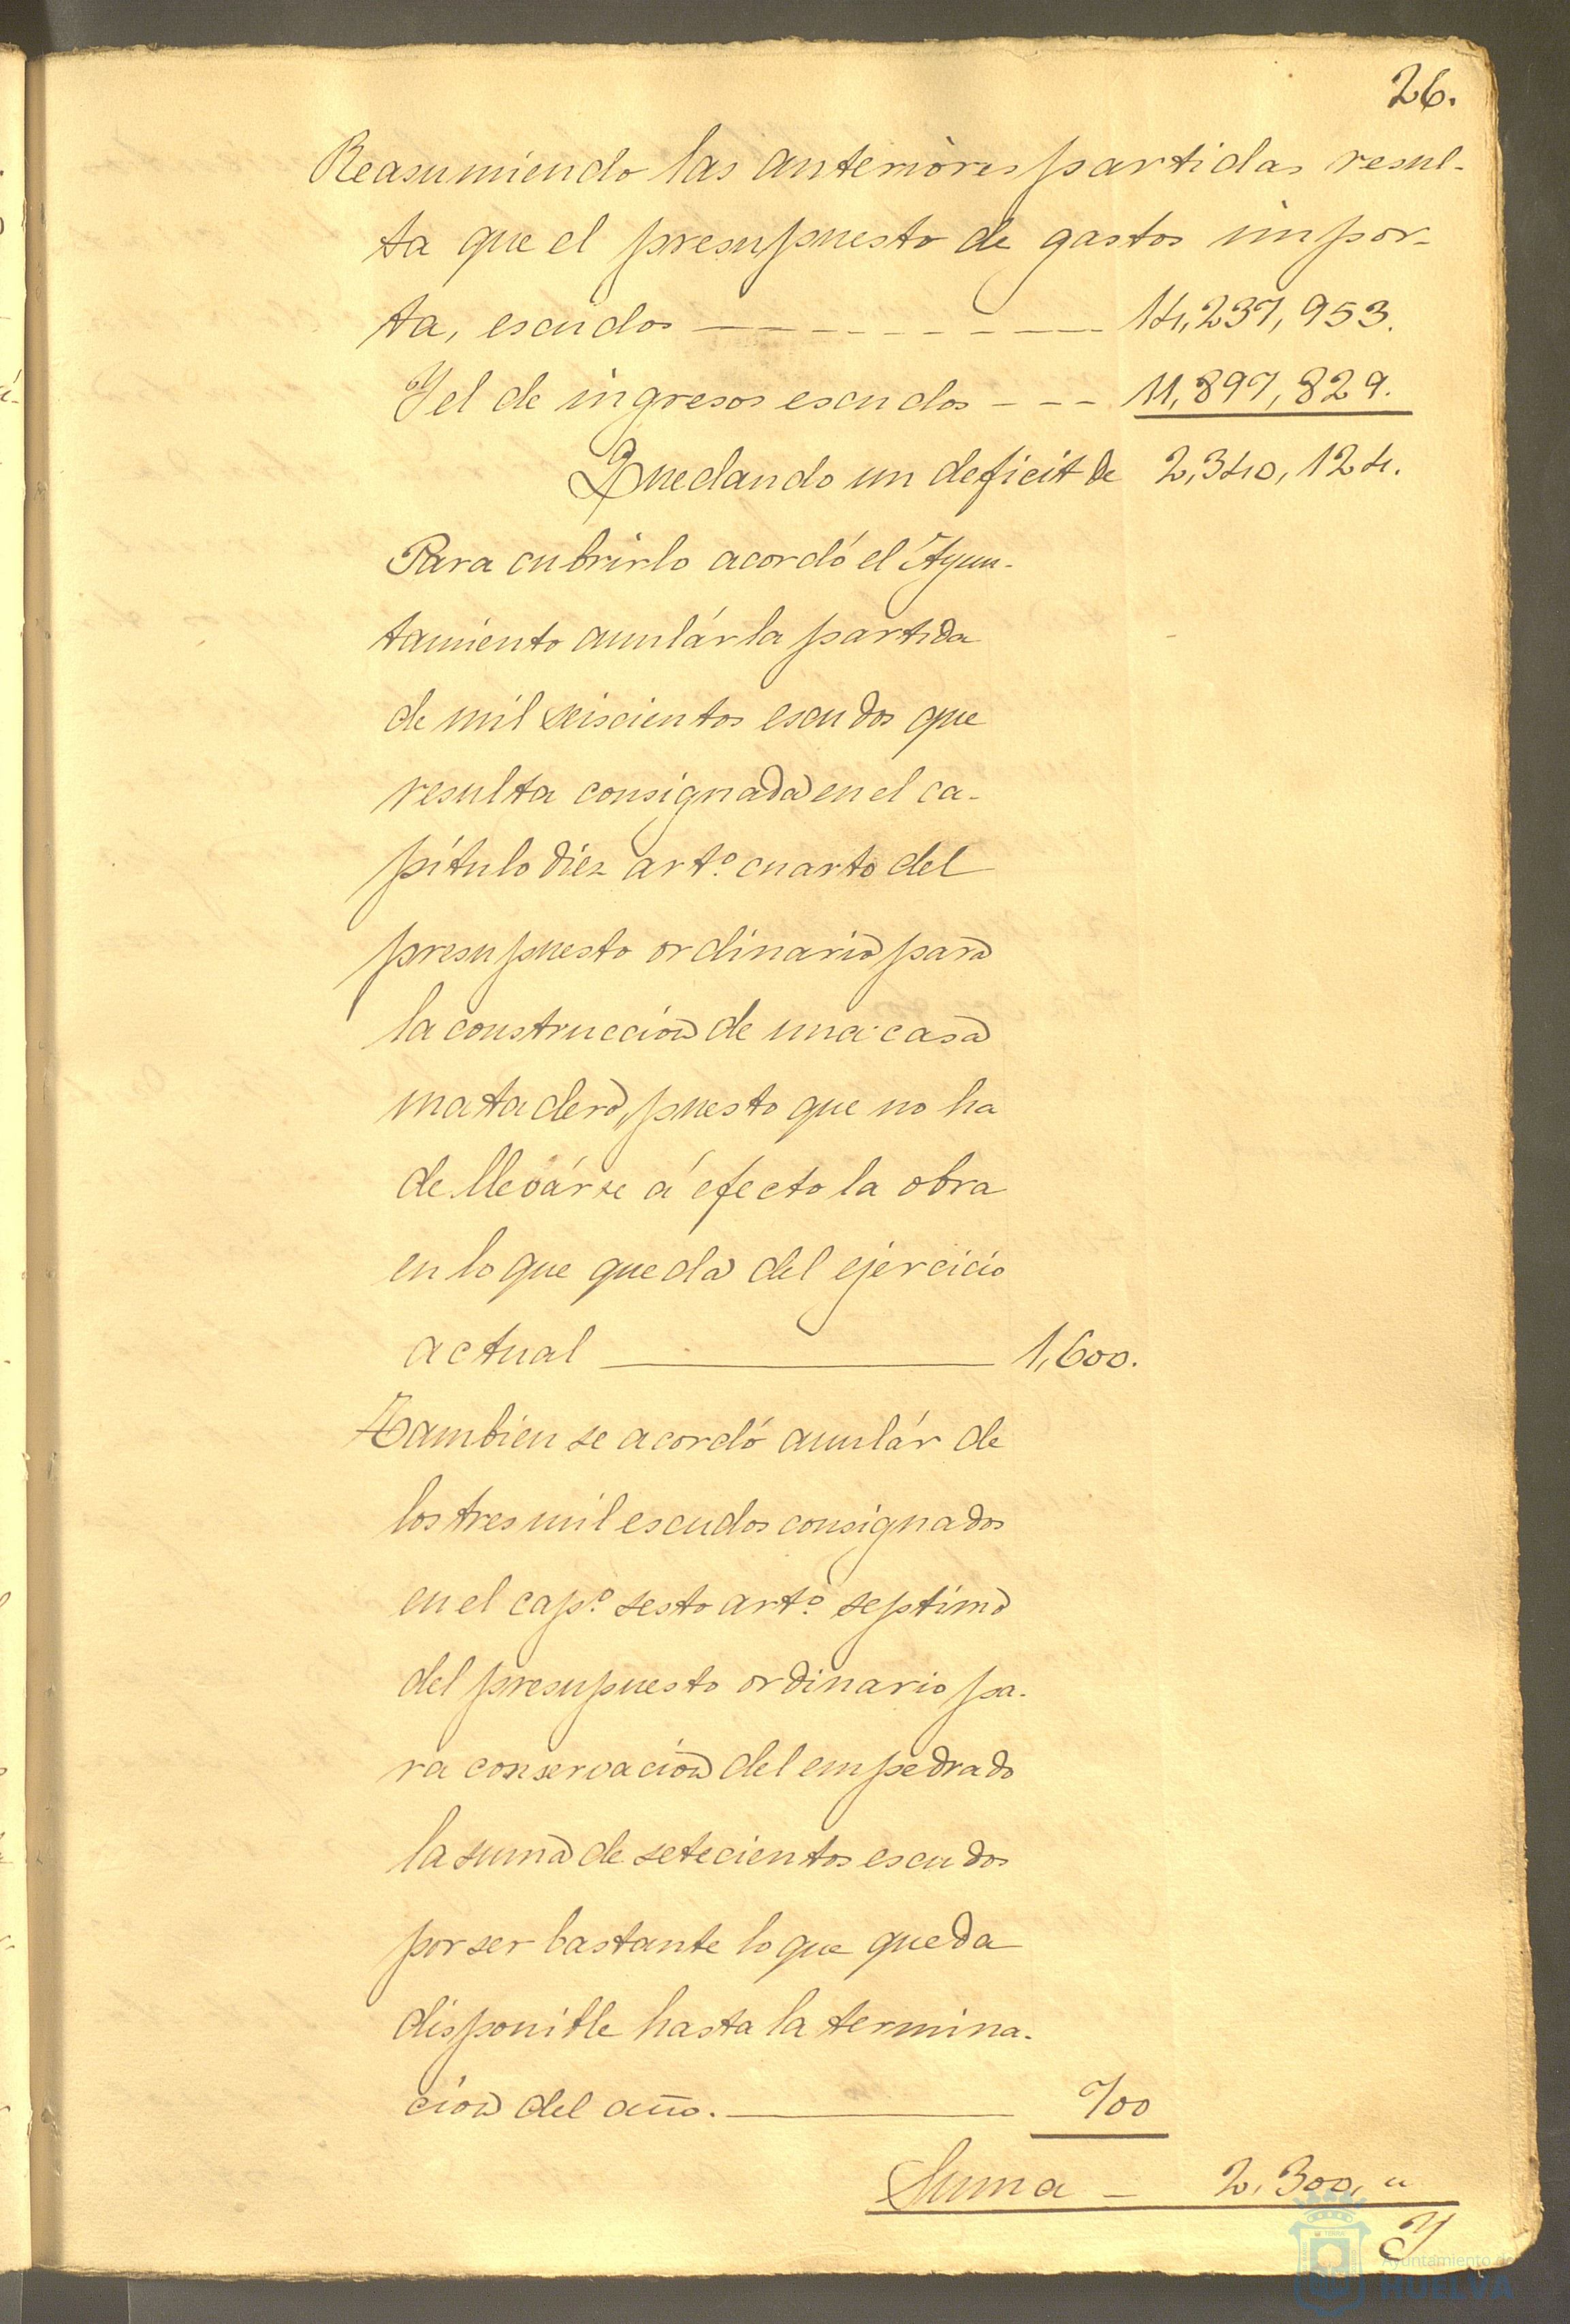 26.
Reasumiendo las anteriores partidas resul-
ta que el presupuesto de gastos impor-
ta, escudos — — — — — — — — 14,237,953.
Y el de ingresos escudos - - - 11,897,829.
Quedando un deficit de 2,340,124.
Para cubrirlo acordó el Ayun-
tamiento anulár la partida
de mil seiscientos escudos que
resulta consignada en el ca-
pítulo diez artº cuarto del
presupuesto ordinario para
la construccion de una casa
matadero, puesto que no ha
de llevárse á efecto la obra
en lo que queda del ejercicio
actual ——— 1,600.
Tambien se acordó anulár de
los tres mil escudos consignados
en el capº sesto artº septimo
del presupuesto ordinario pa-
ra conservacion del empedrado
la suma de setecientos escudos
por ser bastante lo que queda
disponible hasta la termina-
cion del año. ——— 700
Suma — 2,300, "
Y
Ayuntamiento de
HUELVA